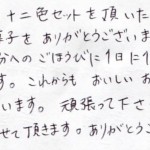 十二色セットを頂いた
菓子を ありがとうございま
分へのごほうびに1日に1
す。これからも おいしい お
います。頑張って下さ
せて頂きます。ありがとうこ